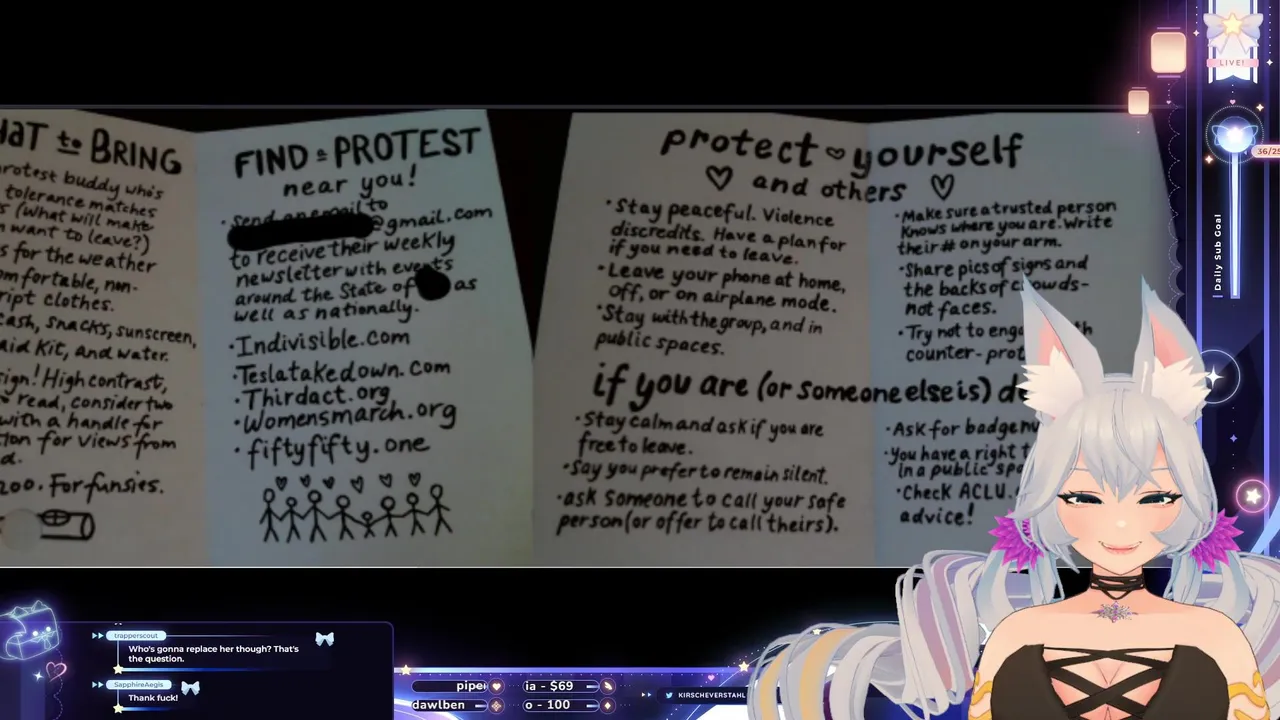 TO BRING
protest buddy who's
tolerance matches
(what will make
want to leave?)
for the weather
non-
clothes.
cash, snacks, sunscreen,
aid kit, and water.
sign! High contrast,
read, consider two
with a handle for
for views from
200. For funsies.
FIND a PROTEST
near you!
• Send an email to
@gmail.com
to receive their weekly
newsletter with events
around the State of as
well as nationally.
• Indivisible.com
• Teslatakedown.com
• Thirdact.org
• Womensmarch.org
• fiftyfifty.one
protect yourself
and others
• Stay peaceful. Violence
discredits. Have a plan for
if you need to leave.
• Leave your phone at home,
off, or on airplane mode.
• Stay with the group, and in
public spaces.
• Make sure a trusted person
knows where you are. Write
their # on your arm.
• Share pics of signs and
the backs of crowds-
not faces.
• Try not to
counter-
if you are (or someone else is)
• Stay calm and ask if you are
free to leave.
• Say you prefer to remain silent.
• ask someone to call your safe
person (or offer to call theirs).
• Ask for badge
• You have a right
in a public
• Check ACLU.
advice!
LIVE!
36/25
Daily Sub Goal
trapperscout
Who's gonna replace her though? That's
the question.
SapphireAegis
Thank fuck!
pipe
ia - $69
dawlben
o - 100
KIRSCHEVERSTAHL